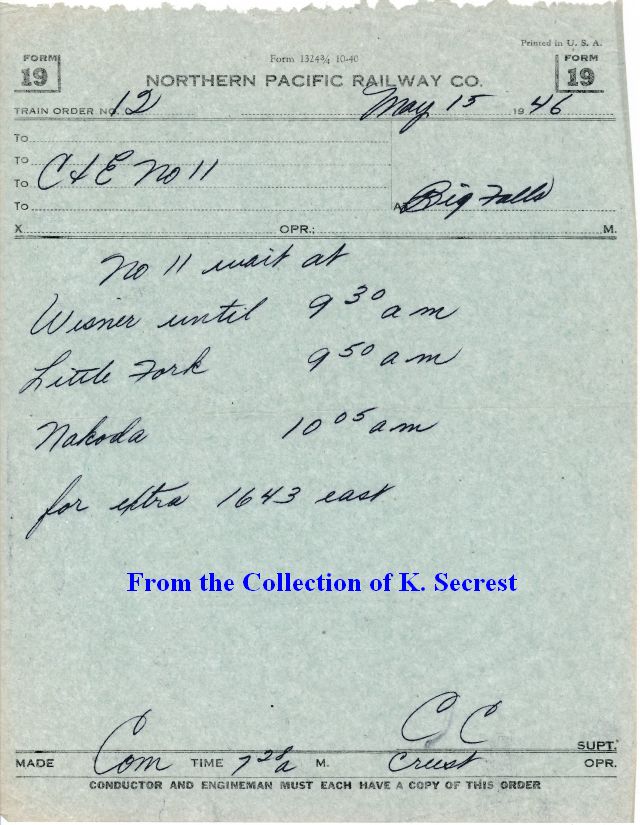 Printed in U. S. A.
FORM 19
Form 1324¾ 10-40
FORM 19
NORTHERN PACIFIC RAILWAY CO.
TRAIN ORDER NO. 12 May 15 1946
To
To
To C & E No 11
To At Big Falls
X OPR.; M.
No 11 wait at
Wisner until 9 30 a m
Little Fork 9 50 a m
Nakoda 10 05 a m
for extra 1643 east
From the Collection of K. Secrest
C C SUPT.
MADE Com TIME 7 28 a M. OPR.
CONDUCTOR AND ENGINEMAN MUST EACH HAVE A COPY OF THIS ORDER